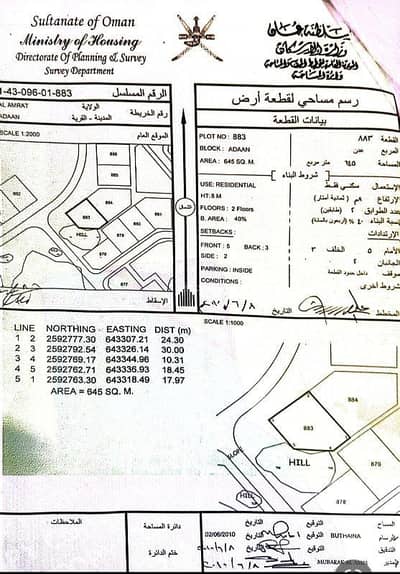 Sultanate of Oman
Ministry of Housing
Directorate Of Planning & Survey
Survey Department
سلطنة عمان
وزارة الإسكان
دائرة المساحة
1-43-096-01-883
الرقم المسلسل
AL AMRAT
الولاية
رقم الخريطة
ADAAN
المدينة - القرية
SCALE 1:2000
الموقع العام
رسم مساحي لقطعة أرض
بيانات القطعة
PLOT NO : 883
٨٨٣ القطعة
BLOCK : ADAAN
عدن المربع
AREA : 645 SQ. M.
٦٤٥ متر مربع المساحة
شروط البناء
USE: RESIDENTIAL
الإستعمال سكني فقط
HT: 8 M
الإرتفاع ٨م (ثمانية أمتار)
FLOORS : 2 Floors
عدد الطوابق ٢ (طابقين)
B. AREA : 40%
نسبة البناء ٤٠٪ (أربعون بالمائة)
SETBACKS :
الإرتدادات
FRONT : 5 BACK : 3
الأمام ٥ الخلف ٣
SIDE : 2
الجانبان ٢
PARKING : INSIDE
موقف داخل حدود القطعة
CONDITIONS :
شروط أخرى
الشمال
HILL
الإسقاط
التاريخ
المخطط
SCALE 1:1000
LINE NORTHING EASTING DIST (m)
1 2 2592777.30 643307.21 24.30
2 3 2592792.54 643326.14 30.00
3 4 2592769.17 643344.96 10.31
4 5 2592762.71 643336.93 18.45
5 1 2592763.30 643318.49 17.97
AREA = 645 SQ. M.
884
883
SLOPE
HILL
879
878
HILL
الملاحظات :
دائرة المساحة
ختم الدائرة
02/06/2010 التاريخ التوقيع BUTHAINA
المساح
الرسام
التاريخ التوقيع
التدقيق
التاريخ التوقيع
المدير